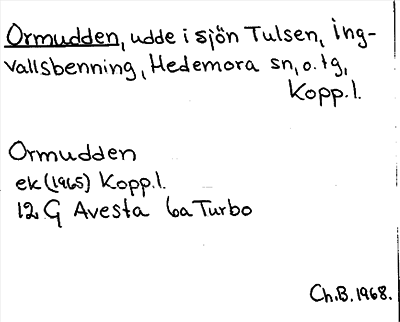 Ormudden, udde i sjön Tulsen, Ing-
vallsbenning, Hedemora sn, o. tg,
Kopp.l.
Ormudden
ek (1965) Kopp.l.
12 G Avesta 6a Turbo
Ch.B. 1968.